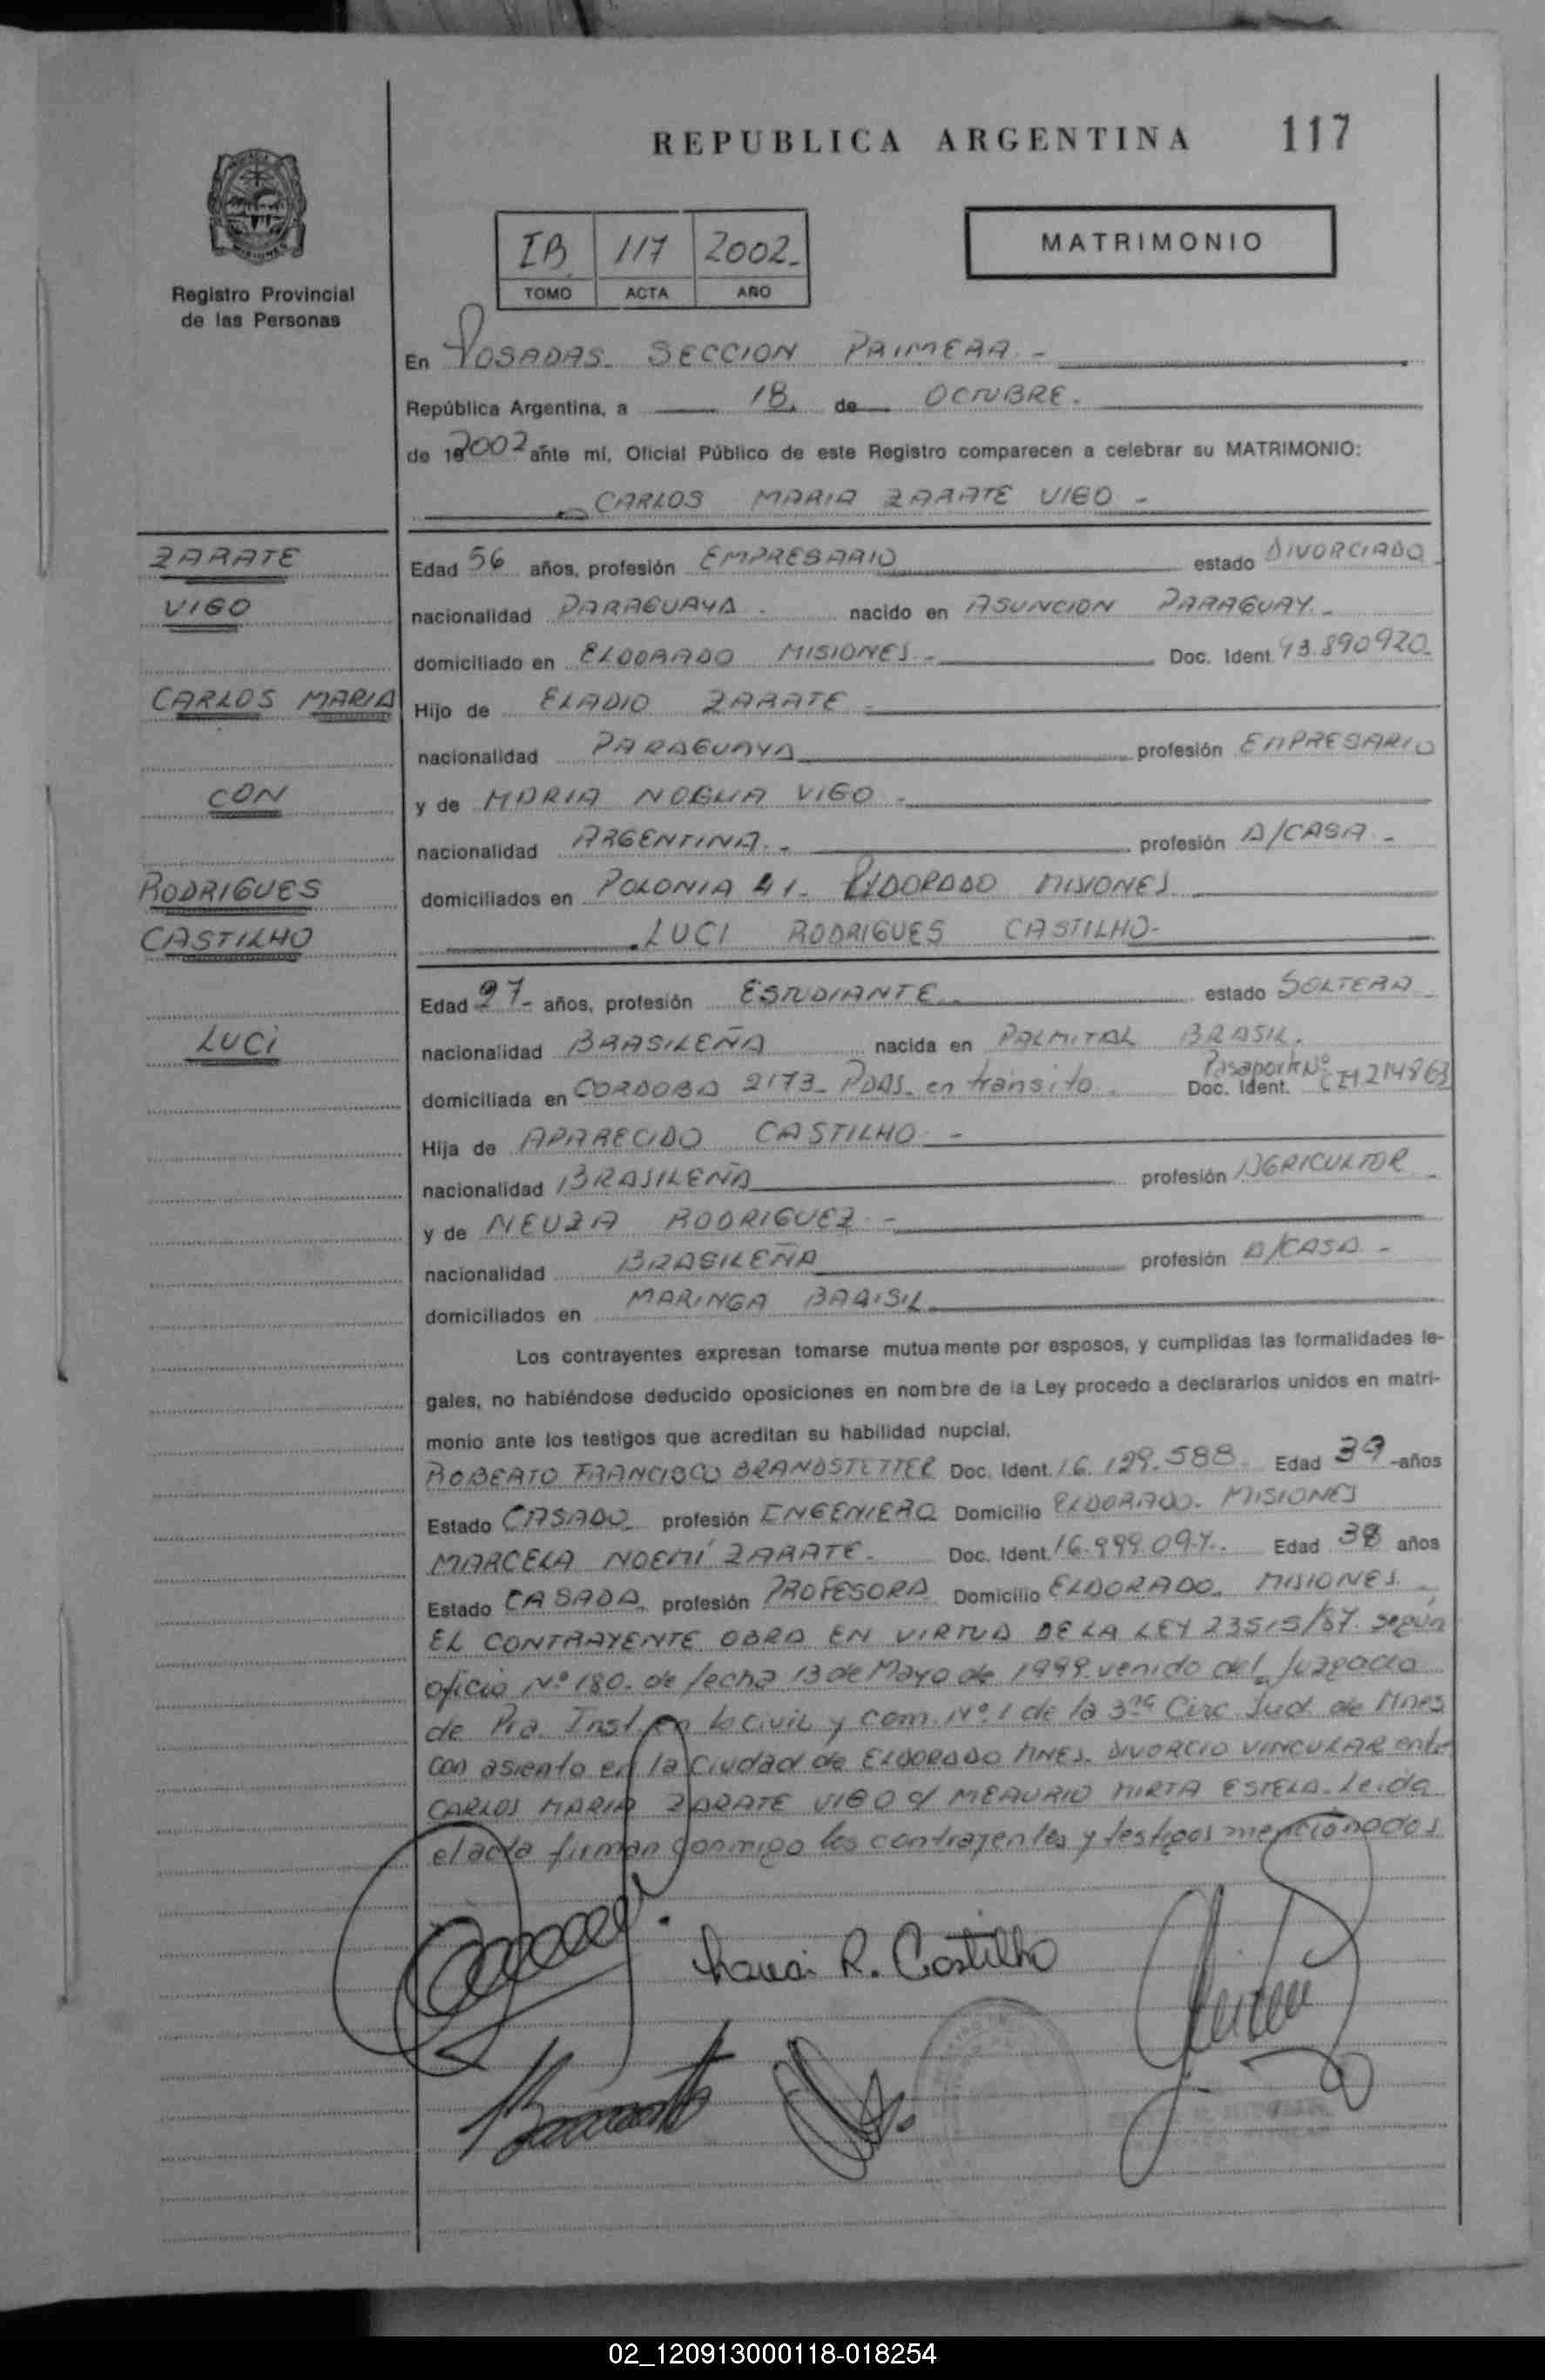 REPUBLICA ARGENTINA 117
MISIONES
Registro Provincial
de las Personas
IB 117 2002-
TOMO ACTA AÑO
MATRIMONIO
En POSADAS SECCION PRIMERA -
República Argentina, a 18 de OCTUBRE.
de 192002 ante mí, Oficial Público de este Registro comparecen a celebrar su MATRIMONIO:
CARLOS MARIA ZARATE VIGO -
ZARATE
VIGO
CARLOS MARIA
CON
RODRIGUES
CASTILHO
LUCI
Edad 56 años, profesión EMPRESARIO estado DIVORCIADO
nacionalidad PARAGUAYA. nacido en ASUNCION PARAGUAY.-
domiciliado en ELDORADO MISIONES.- Doc. Ident. 93.890920-
Hijo de ELADIO ZARATE -
nacionalidad PARAGUAYA profesión EMPRESARIO
y de MARIA NOELIA VIGO -
nacionalidad ARGENTINA.- profesión A/CASA -
domiciliados en POLONIA 41- ELDORADO MISIONES
LUCI RODRIGUES CASTILHO-
Edad 27- años, profesión ESTUDIANTE estado SOLTERA
nacionalidad BRASILEÑA nacida en PALMITAL BRASIL.
domiciliada en CORDOBA 2173- PDAS- en tránsito. Doc. Ident. Pasaporte Nº CI1214863
Hija de APARECIDO CASTILHO -
nacionalidad BRASILEÑA profesión AGRICULTOR
y de NEUZA RODRIGUEZ -
nacionalidad BRASILEÑA profesión A/CASA -
domiciliados en MARINGA BRASIL
Los contrayentes expresan tomarse mutuamente por esposos, y cumplidas las formalidades le-
gales, no habiéndose deducido oposiciones en nombre de la Ley procedo a declararlos unidos en matri-
monio ante los testigos que acreditan su habilidad nupcial.
ROBERTO FRANCISCO BRANDSTETTER Doc. Ident. 16.129.588 Edad 39 -años
Estado CASADO profesión INGENIERO Domicilio ELDORADO. MISIONES
MARCELA NOEMÍ ZARATE. Doc. Ident. 16.999.097. Edad 38 años
Estado CASADA profesión PROFESORA Domicilio ELDORADO. MISIONES
EL CONTRAYENTE OBRA EN VIRTUD DE LA LEY 23515/87. según
oficio Nº 180. de fecha 13 de Mayo de 1999. venido del Juzgado
de Pra. Inst. en lo Civil y Com. Nº 1 de la 3ra Circ. Jud. de Mnes
con asiento en la Ciudad de ELDORADO MNES. DIVORCIO VINCULAR entre
CARLOS MARIA ZARATE VIGO c/ MEAURIO MIRTA ESTELA. Leida
el acta firman conmigo los contrayentes y testigos mencionados.
R. Castilho
02_120913000118-018254